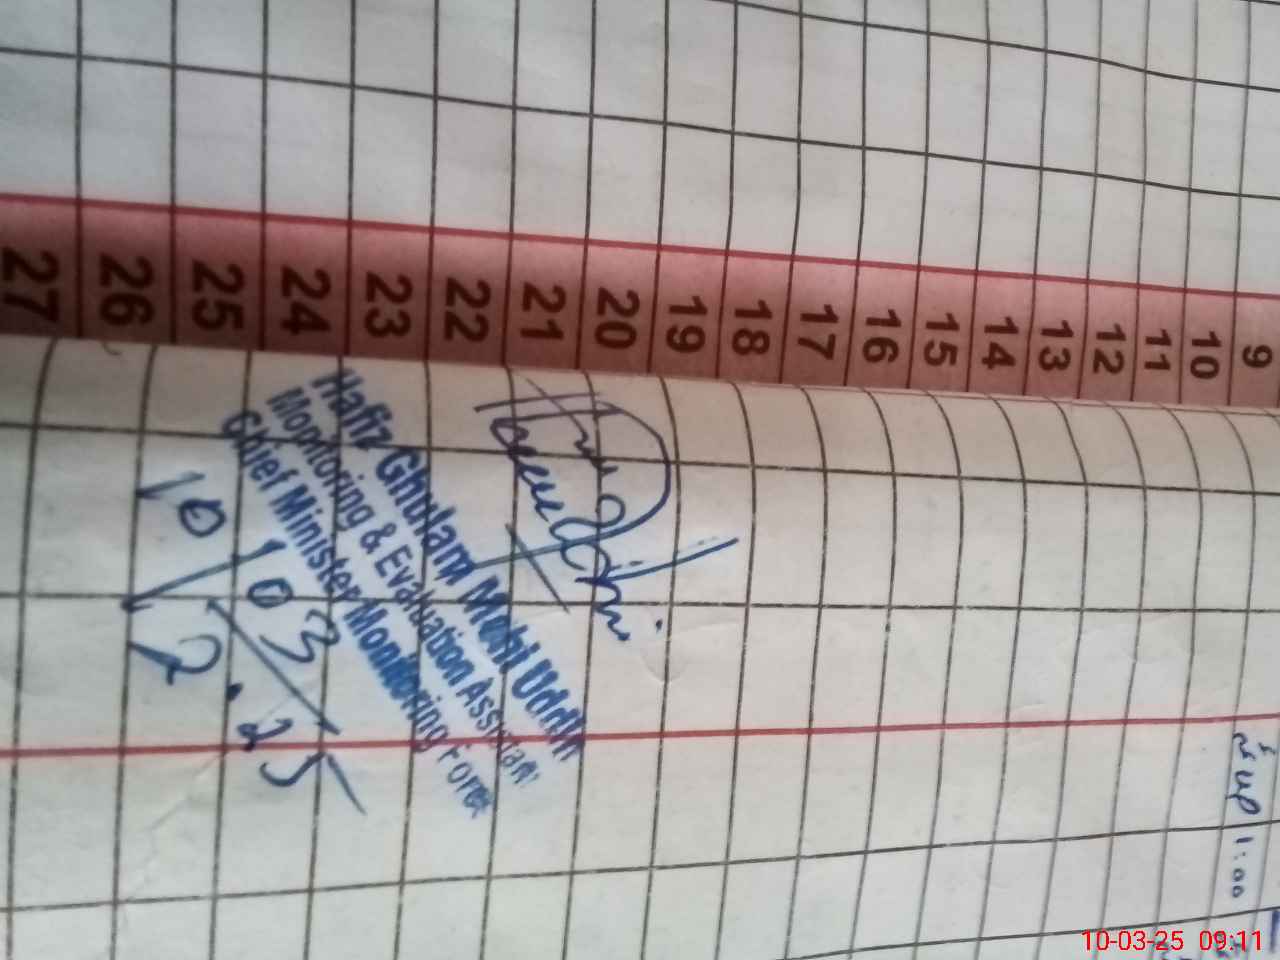 9
10
11
12
13
14
15
16
17
18
19
20
21
22
23
24
25
26
27
Hafiz Ghulam Mohi Uddin
Monitoring & Evaluation Assistant
Chief Minister Monitoring Force
10/03/25
1:00
10-03-25 09:11